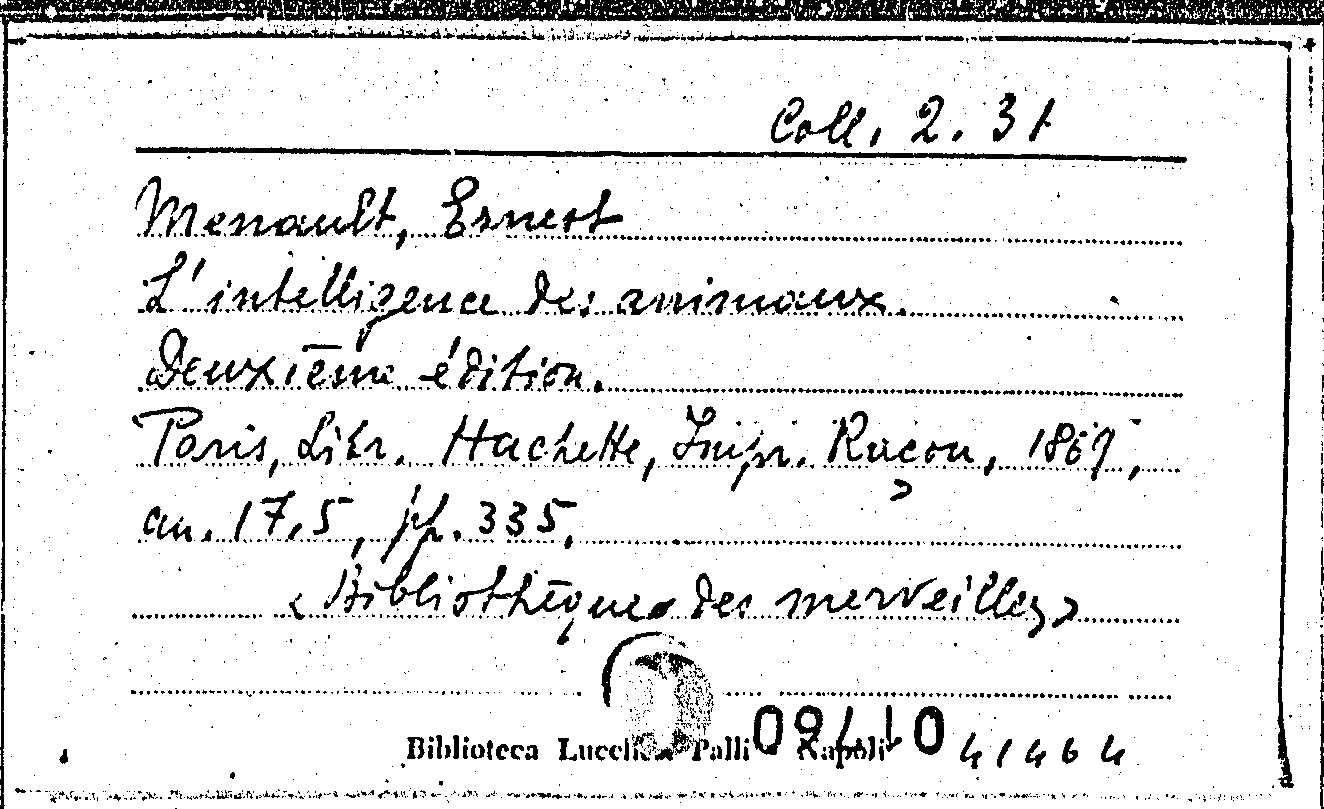 Coll. 2. 31
Menault, Ernest
L'intelligence des animaux.
Deuxième édition.
Paris, Libr. Hachette, Impr. Raçon, 1869,
cm. 17,5, pp. 335,
«Bibliothèque des merveilles»
Biblioteca Lucchesi Palli - Napoli
41464